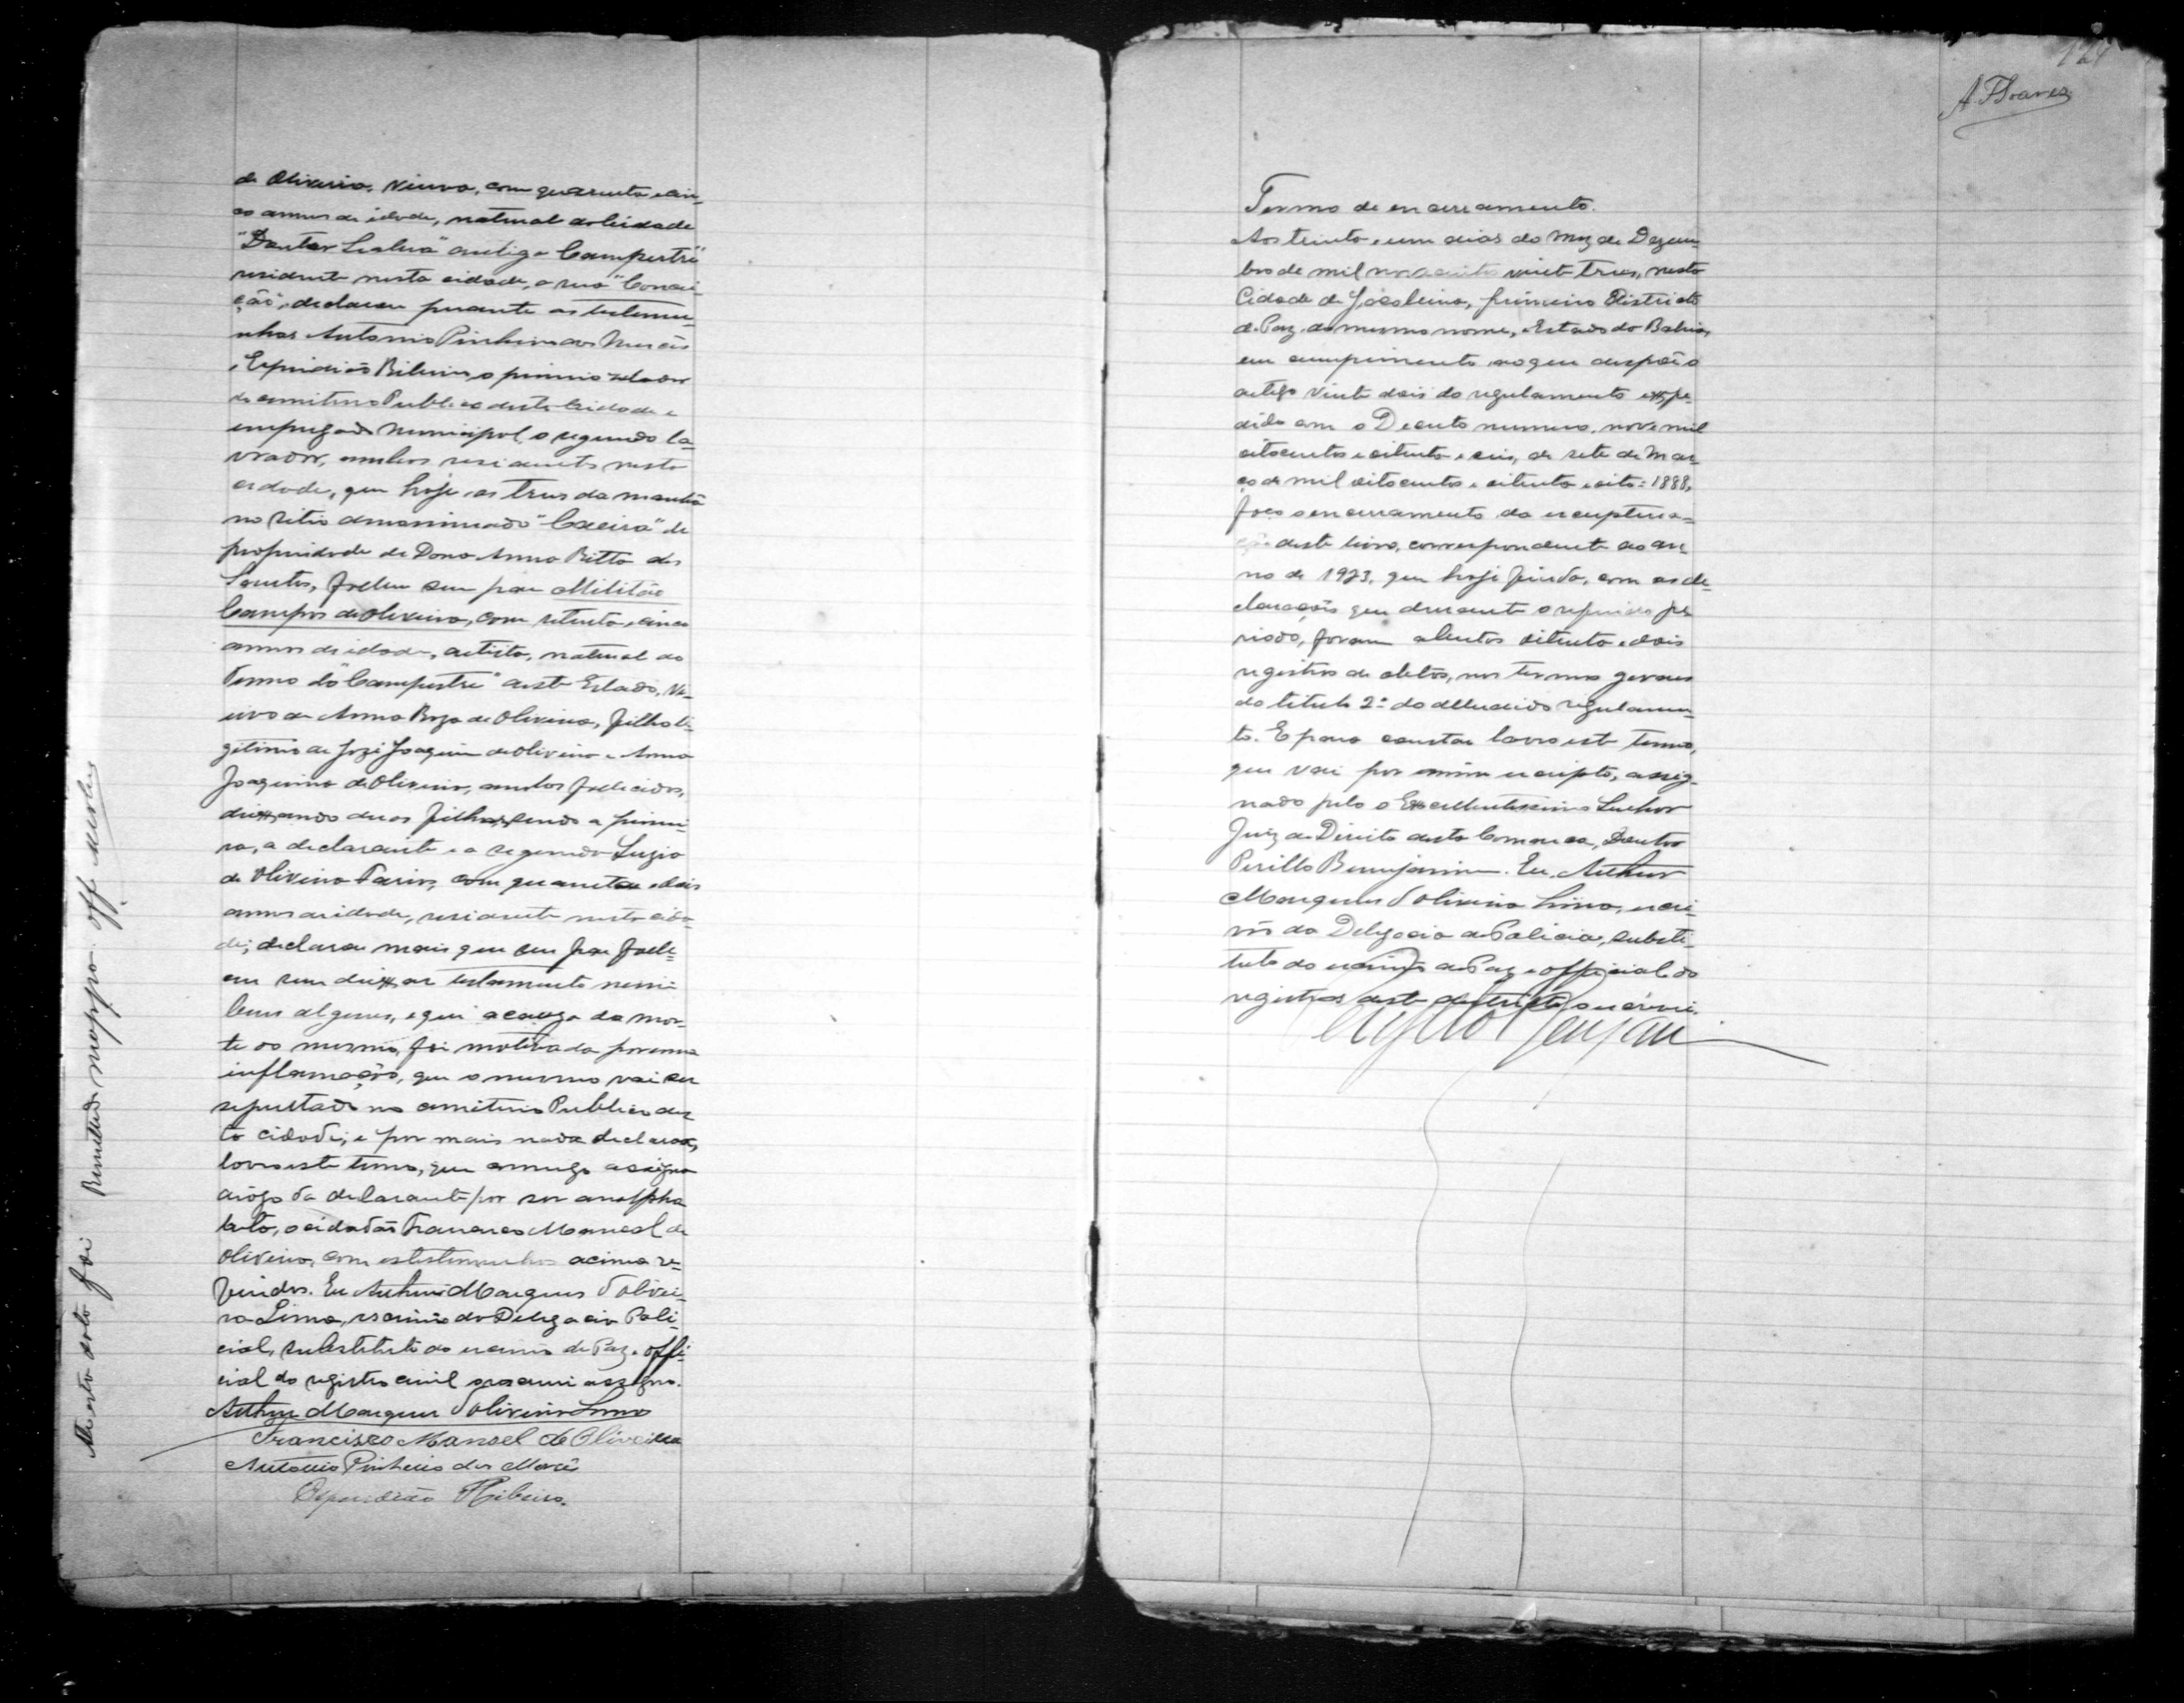 de Oliveira, viuva, com quarenta e cin-
co annos de idade, natural da Cidade
"Doutor Seabra" antiga Campestre"
residente nesta cidade, a rua "Concei-
ção", declarou perante as testemu-
nhas Antonio Pinheiro das Mercês
e Espiridião Ribeiro, o primeiro zelador
do cemiterio Publico desta Cidade e
empregado Municipal, o segundo la-
vrador, ambos residentes nesta
cidade, que hoje as tres da manhã
no Sitio denominado "Caeira" de
propriedade de Dona Anna Ritta dos
Santos, falleceu seu pae Militão
Campos de Oliveira, com setenta e cinco
annos de idade, artista, natural do
Termo do "Campestre" deste Estado, Vi-
uvo de Anna Roza de Oliveira, filho le-
gitimo de Jozé Joaquim de Oliveira e Anna
Joaquina de Oliveira, ambos fallecidos,
deixando duas filhas, sendo a primei-
ra, a declarante e a segunda Luzia
de Oliveira Farias, com quarenta e dois
annos de idade, residente nesta cida-
de; declarou mais que seu pae falle-
ceu sem deixar testamento nem
bens alguns, e que a cauza da mor-
te do mesmo, foi motivada por uma
inflamação, que o mesmo vai ser
sepultado no cemiterio Publico des-
ta cidade; e por mais nada declarar,
lavro este termo, que commigo assigna
a rôgo da declarante por ser analpha
beta, o cidadão Francisco Manoel de
Oliveira, com as testemunhas acima re-
feridas. Eu Arthur Marques d'Olivei-
ra Lima, escrivão da Delegacia Poli-
cial, substituto do escrivão de Paz e offi-
cial do registro civil o escrevi e assigno.
Arthur Marques d'Oliveira Lima
Francisco Manoel de Oliveira
Antonio Pinheiro das Mercês
Espiridião Ribeiro.
foi Remettido mappa
124
A. F. Soares
Termo de encerramento.
Aos trinta e um dias do mez de Dezem-
bro de mil novecentos vinte tres, nesta
Cidade de Jacobina, primeiro Districto
de Paz do mesmo nome, Estado da Bahia,
em cumprimento ao que dispõe o
artigo vinte dois do regulamento expe-
dido com o Decreto numero nove mil
oitocentos e oitenta e seis, de sete de Mar-
ço de mil oitocentos e oitenta e oito: 1888,
faço o encerramento da escriptura-
ção deste livro, correspondente ao an-
no de 1923, que hoje finda, com as de-
clarações que durante o referido pe-
riodo, foram abertos oitenta e dois
registros de obitos, nos termos geraes
do titulo 2º do alludido regulamen-
to. E para constar lavro este termo,
que vai por mim escripto, assig-
nado pelo o Excellentissimo Senhor
Juiz de Direito desta Comarca, Doutor
Perillo Benjamim. Eu, Arthur
Marques d'Oliveira Lima, escri-
vão da Delegacia de Policia, substi-
tuto do escrivão de Paz e official do
registros deste districto o escrevi.
Perillo Benjamim